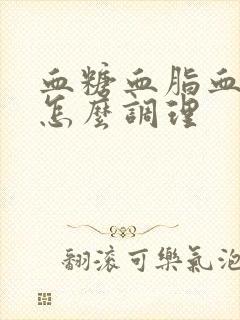 血糖血脂血
怎麼調理
翻滾可樂氣泡